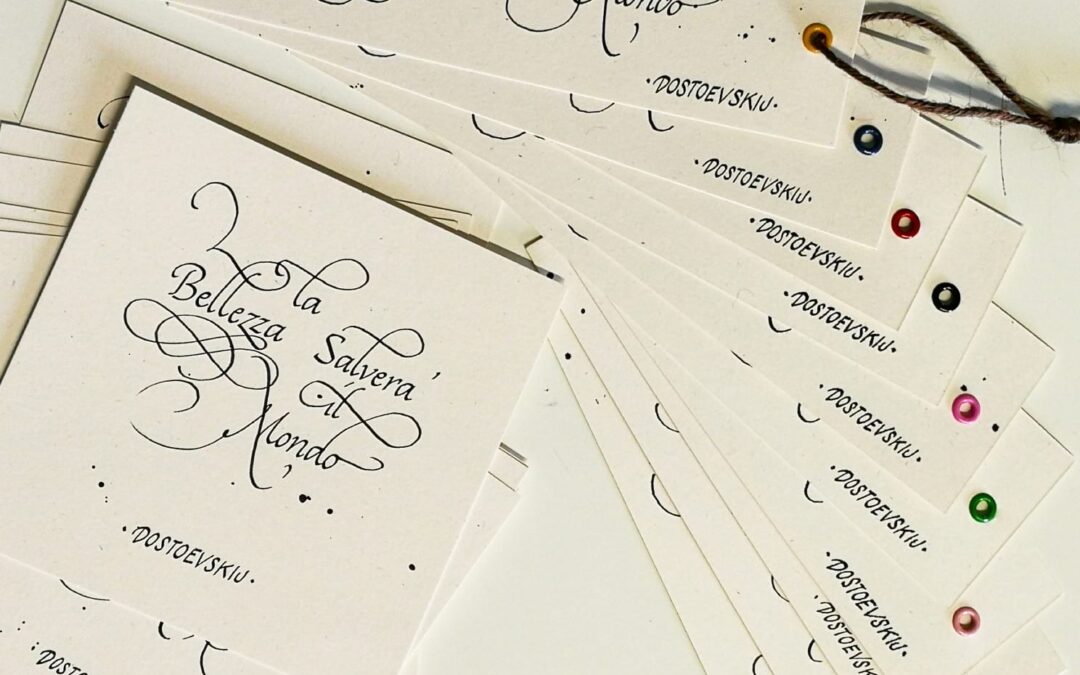 la
Bellezza
Salvera'
il
Mondo
·DOSTOEVSKIJ·
Mondo
·DOSTOEVSKIJ·
·DOSTOEVSKIJ·
·DOSTOEVSKIJ·
·DOSTOEVSKIJ·
·DOSTOEVSKIJ·
·DOSTOEVSKIJ·
·DOSTOEVSKIJ·
·DOSTOEVSK
·DOSTO